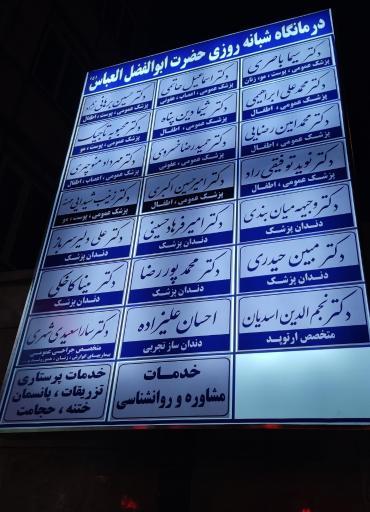 درمانگاه شبانه روزی حضرت ابوالفضل العباس (ع)
دکتر سیما باصری
پزشک عمومی ، پوست ، مو، زنان
دکتر اسماعیل حاتمی
پزشک عمومی ، اعصاب ، عفونی
دکتر حسین برهانی
پزشک عمومی ، پوست ، اطفال
دکتر محمد علی ابراهیمی
پزشک عمومی ، اطفال
دکتر شیما دین پناه
پزشک عمومی ، اطفال
دکتر محبوبه تاجیک
پزشک عمومی ، پوست ، مو
دکتر محمد امین رضایی
پزشک عمومی ، اطفال
دکتر حمید رضا خسروی
پزشک عمومی ، عفونی
دکتر مهرداد منوچهری
پزشک عمومی ، اعصاب ، اطفال
دکتر نوید توفیقی راد
پزشک عمومی ، اطفال
دکتر امیرحسین اکبری
پزشک عمومی ، اطفال
دکتر
پزشک عمومی ، پوست ، مو
دکتر وجیهه میان بندی
دندان پزشک
دکتر امیر فرهاد حسینی
دندان پزشک
دکتر علی دلیر سرباز
دندان پزشک
دکتر مبین حیدری
دندان پزشک
دکتر محمد پور رضا
دندان پزشک
دکتر مینا کاخکی
دندان پزشک
دکتر نجم الدین اسدیان
متخصص ارتوپد
احسان علیزاده
دندان ساز تجربی
دکتر سارا سعیدی
متخصص جراحی عمومی
خدمات
مشاوره و روانشناسی
خدمات پرستاری
تزریقات ، پانسمان
ختنه ، حجامت